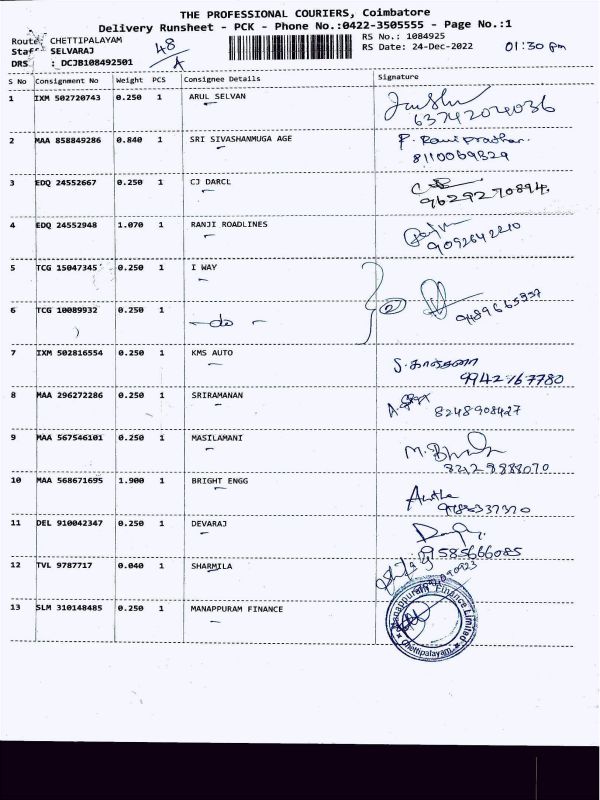 THE PROFESSIONAL COURIERS, Coimbatore
Delivery Runsheet - PCK - Phone No.:0422-3505555 - Page No.:1
Route CHETTIPALAYAM 48 RS No.: 1084925
Staff SELVARAJ A RS Date: 24-Dec-2022 01:30 pm
DRS : DCJB108492501
S No Consignment No Weight PCS Consignee Details Signature
1 IXM 502720743 0.250 1 ARUL SELVAN
6374204036
2 MAA 858849286 0.840 1 SRI SIVASHANMUGA AGE P.
8110069329
3 EDQ 24552667 0.250 1 CJ DARCL
9629270894.
4 EDQ 24552948 1.070 1 RANJI ROADLINES
9092642210
5 TCG 15047345 0.250 1 I WAY
6 TCG 10089932 0.250 1 - do - 2 9489665937
7 IXM 502816554 0.250 1 KMS AUTO
9942767780
8 MAA 296272286 0.250 1 SRIRAMANAN
8248908427
9 MAA 567546101 0.250 1 MASILAMANI
10 MAA 568671695 1.900 1 BRIGHT ENGG
11 DEL 910042347 0.250 1 DEVARAJ
9585666085
12 TVL 9787717 0.040 1 SHARMILA
13 SLM 310148485 0.250 1 MANAPPURAM FINANCE
Manappuram Finance Limited
Chettipalayam